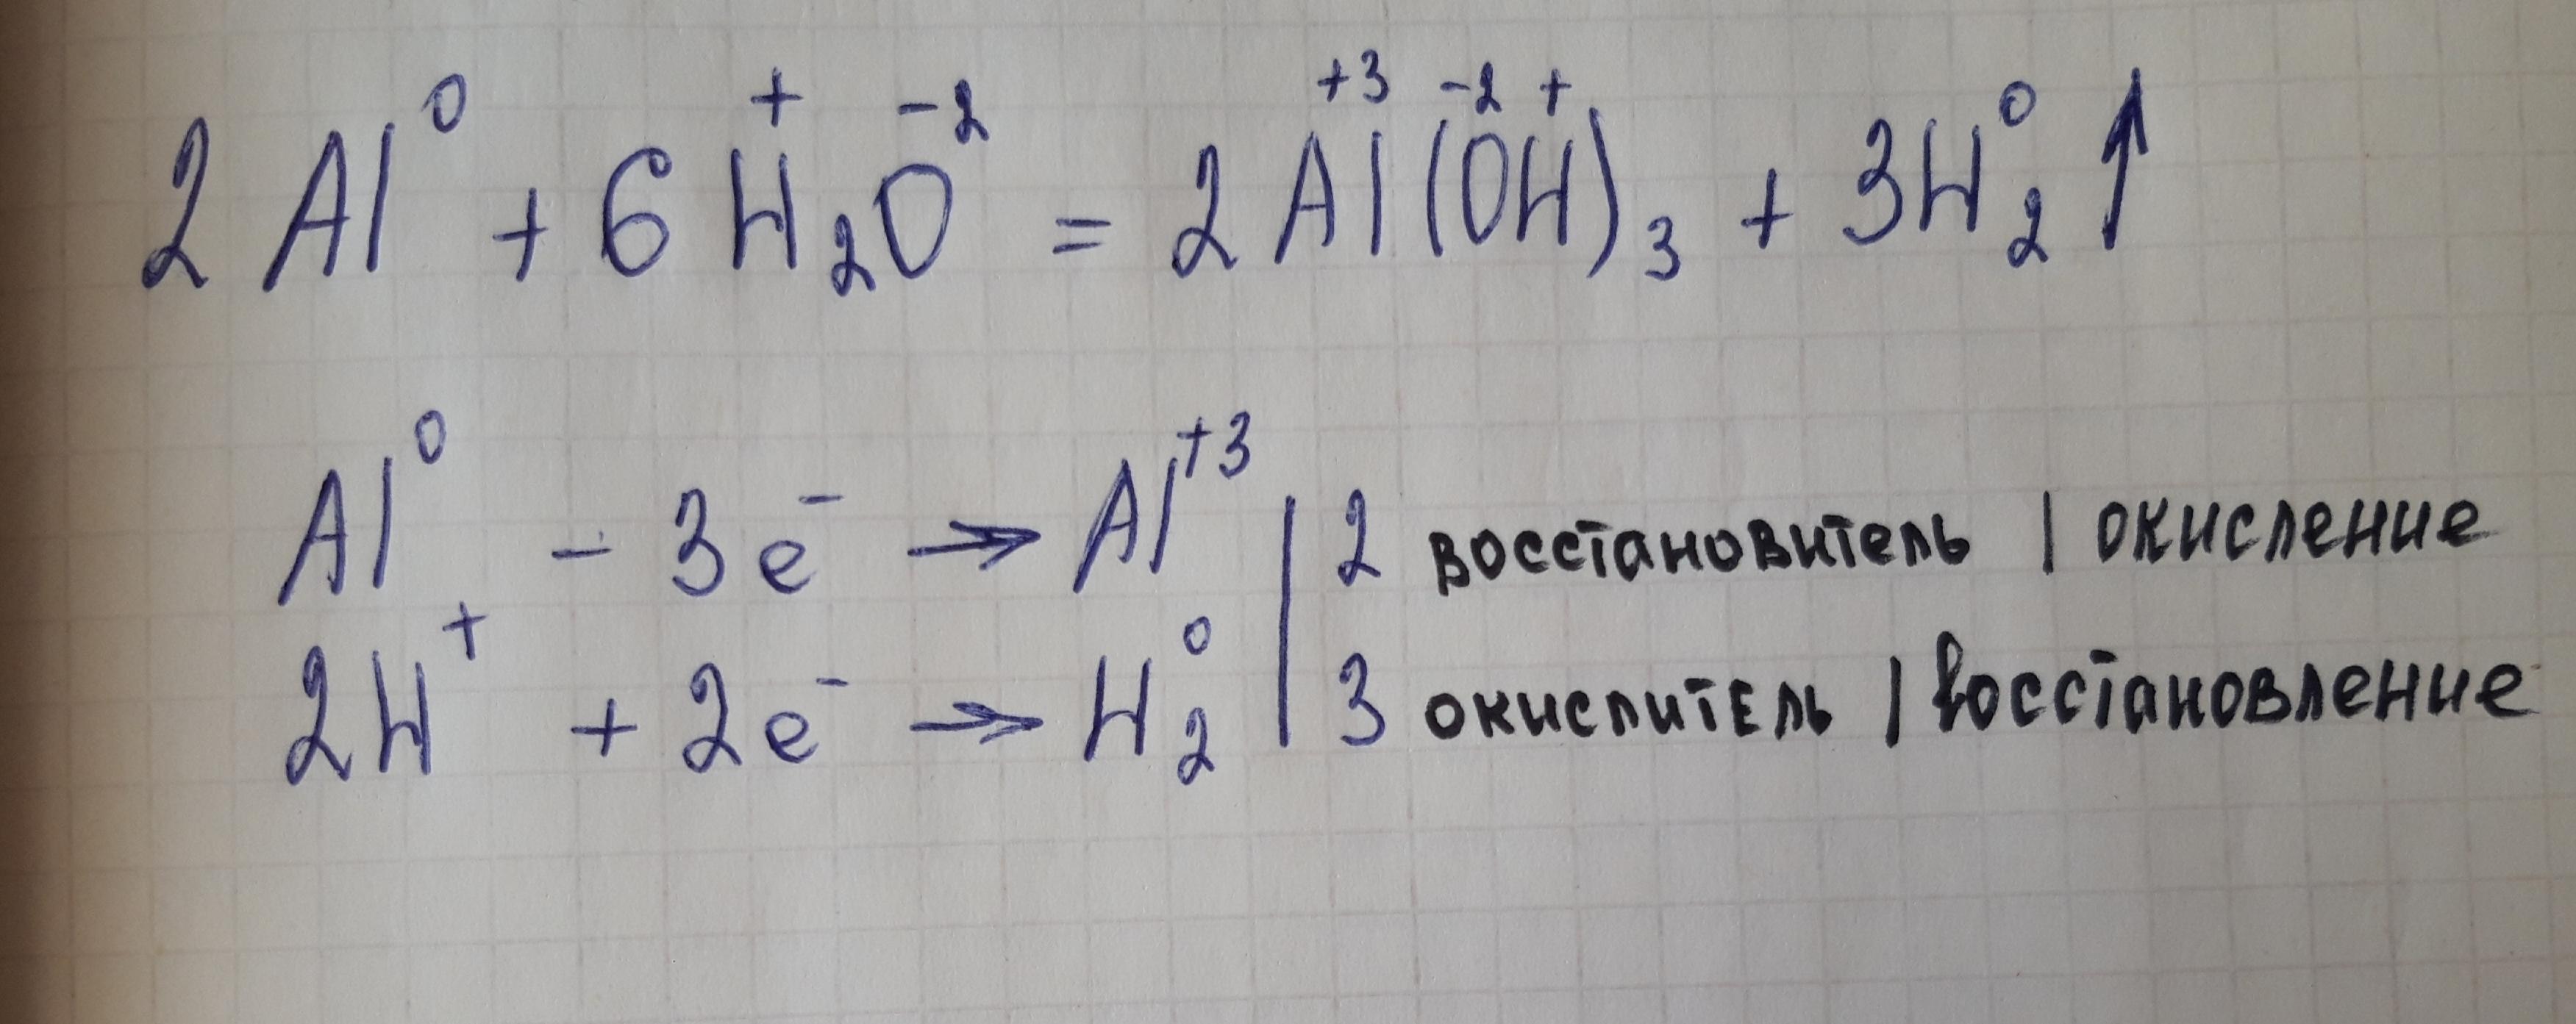 2Al⁰ + 6H⁺₂O⁻² = 2Al⁺³(O⁻²H⁺)₃ + 3H⁰₂↑
Al⁰ - 3e⁻ → Al⁺³ | 2 восстановитель | окисление
2H⁺ + 2e⁻ → H⁰₂ | 3 окислитель | восстановление